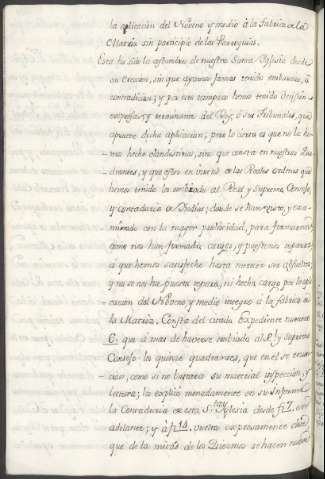 la aplicacion del Noveno y medio à la Fabrica de la
Matriz sin participio de las Parroquias.
Esta ha sido la costumbre de nuestra Santa Iglesia desde
su creacion, sin que ayamos jamas tenido embarazo, ò
contradicion; y por eso tampoco hemos tenido decision
expressa, y terminante del Rey, ò sus Tribunales, que
aprueve dicha aplicacion; pero lo cierto es que no la he-
mos hecho clandestina, sino que consta en nuestros Qua-
drantes, y que estos en virtud de las Reales ordenes que
hemos tenido los embiado al Real y Supremo Consejo,
y contaduria de Indias; donde se han visto, y exa-
minado con la mayor prolixidad, pues formaron
como nos han formado cargos, y puesto reparos
à que hemos satisfecho hasta merecer su absolucion
y no se nos ha puesto reparo, ni hecho cargo por la apli-
cacion del Noveno y medio integro à la fabrica de
la Matriz. Consta del citado Expediente numero
6, que à mas de haverse embiado al Rl. y Supremo
Consejo los quince quadrantes, que en el se enun-
cian, como si no bastara su material inspeccion, y
lectura; lo explicò menudamente en su Informe
la Contaduria de esta Sta. Iglesia desde f 7. en
adelante; y à f 18. vuelta expresamente dice
que de la mitad de los Diezmos se hacen nueve